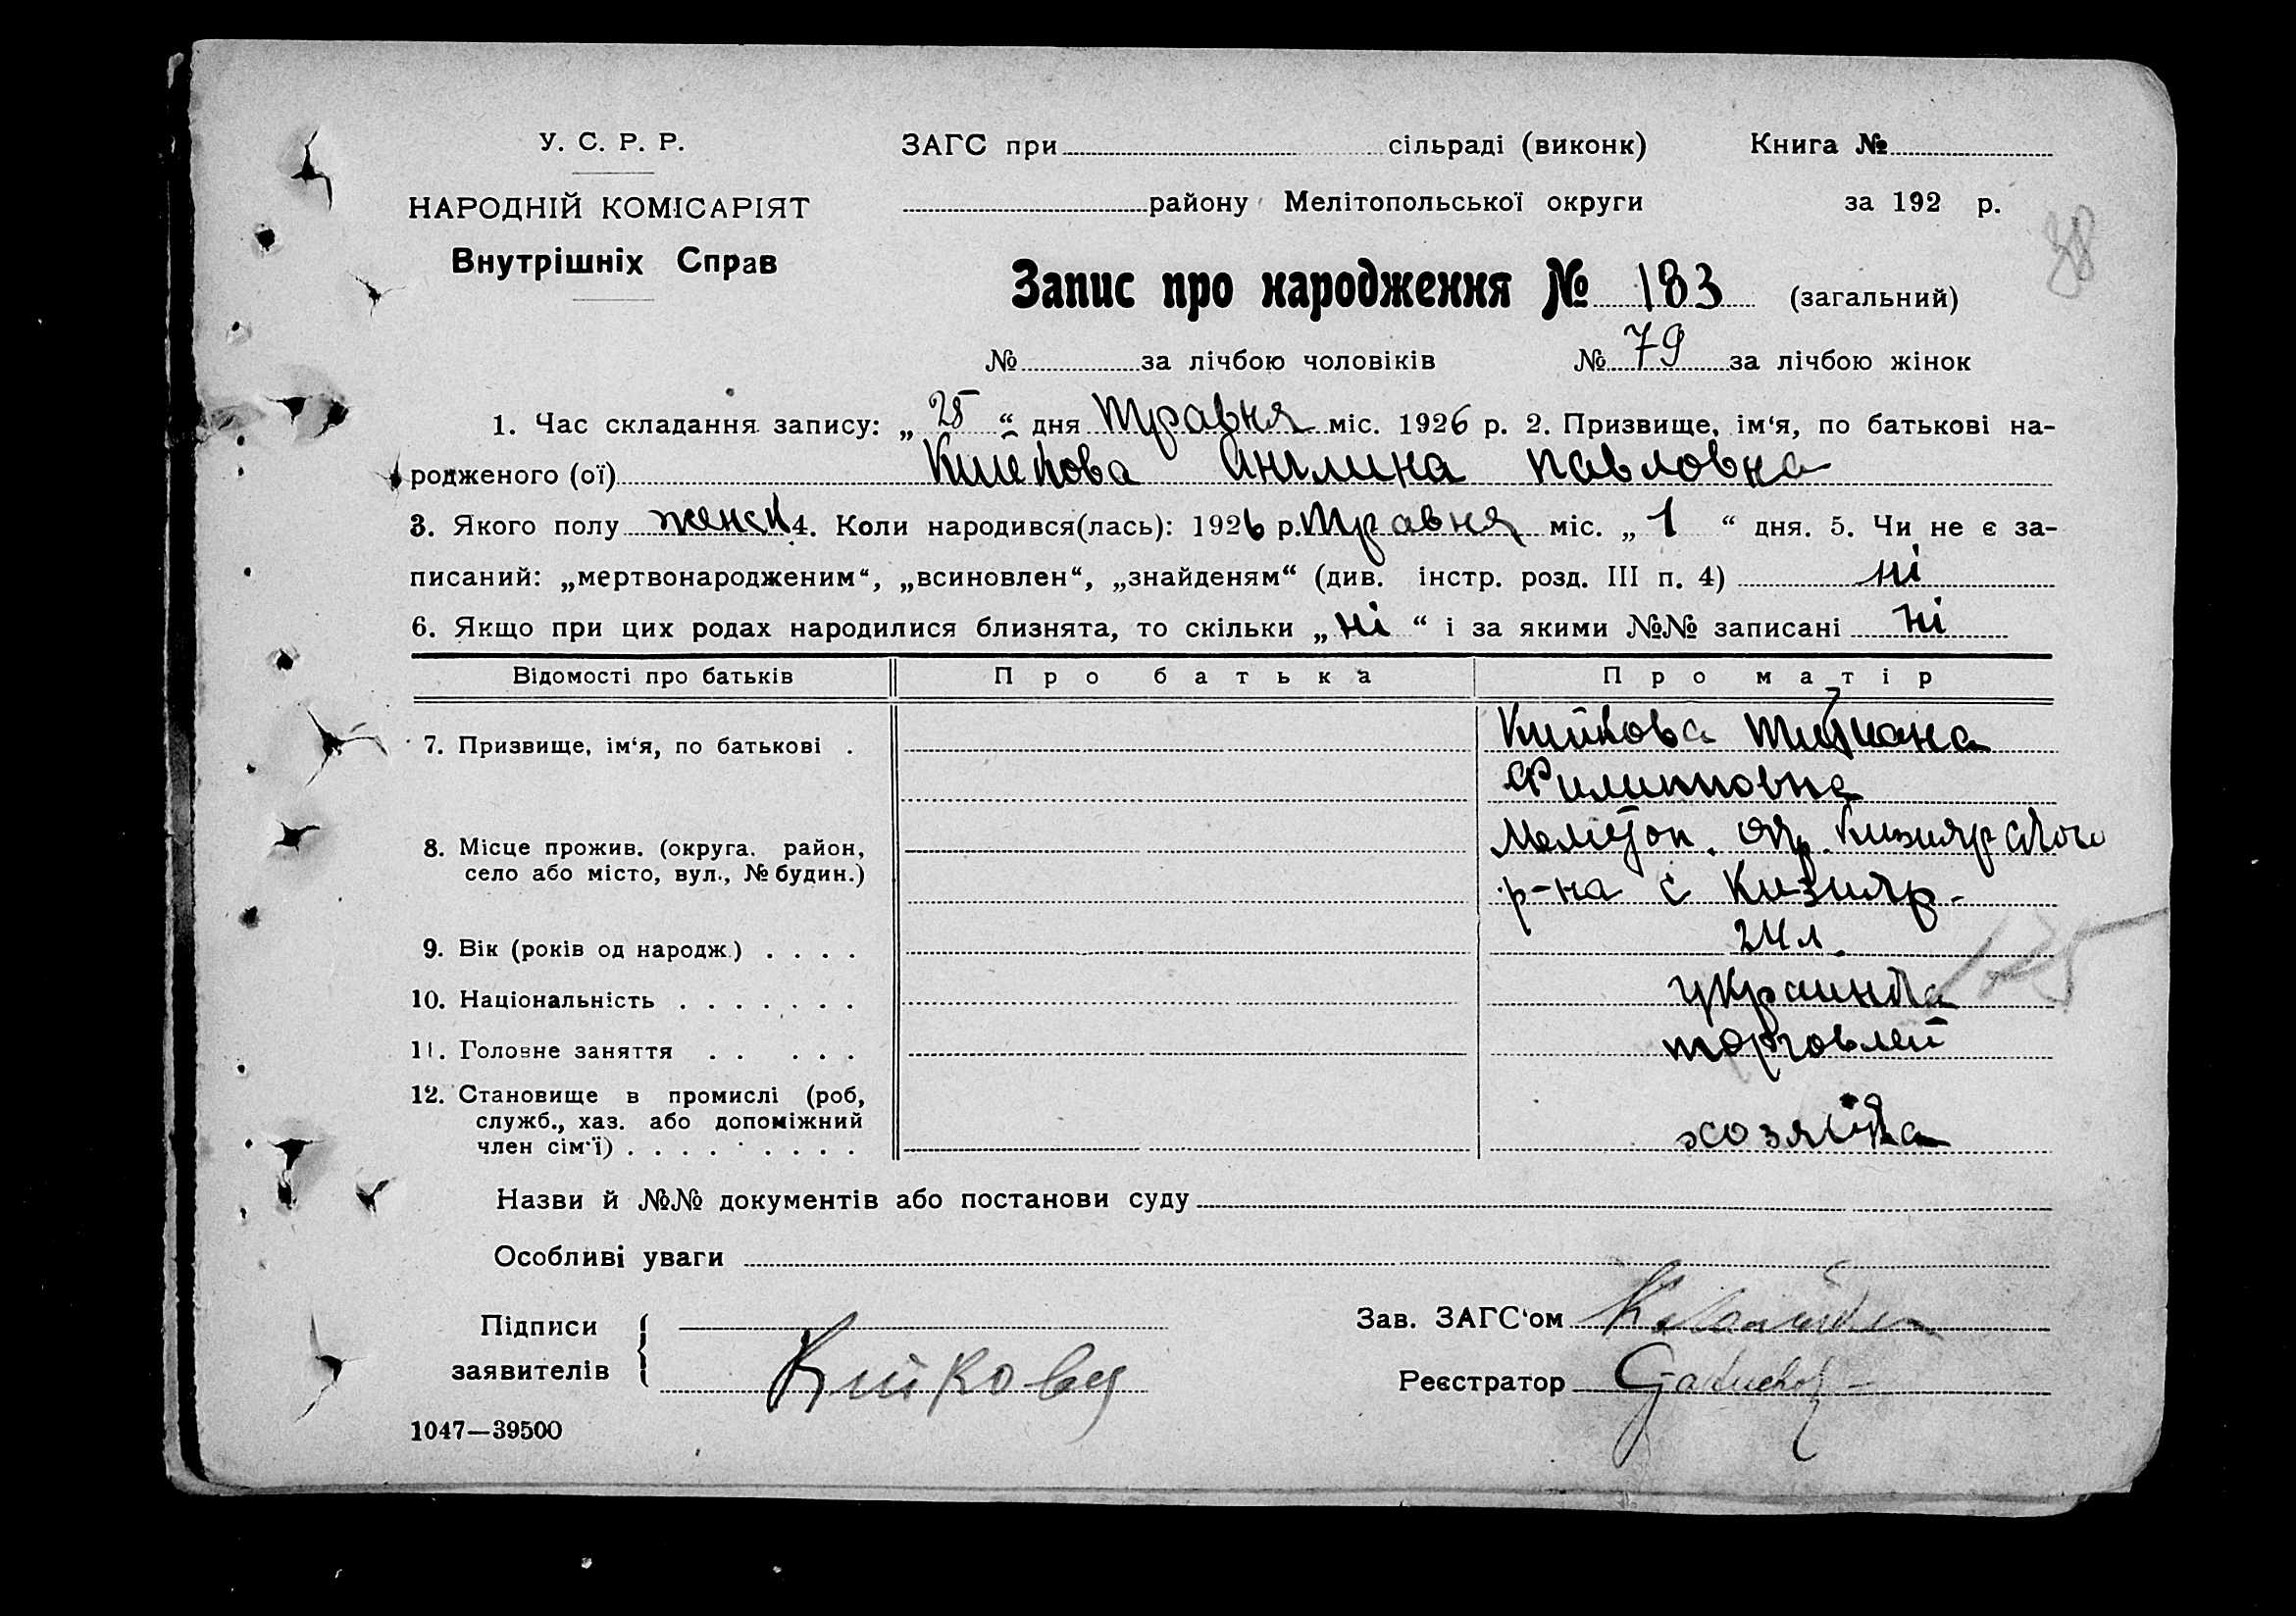 У. С. Р. Р.
НАРОДНІЙ КОМІСАРІЯТ
Внутрішніх Справ
ЗАГС при сільраді (виконк) Книга №
району Мелітопольської округи за 192 р.
88
Запис про народження № 183 (загальний)
№ за лічбою чоловіків № 79 за лічбою жінок
1. Час складання запису: „ 25 “ дня травня міс. 1926 р. 2. Призвище, ім‘я, по батькові на-
родженого (ої) Кийкова Ангилина Павловна
3. Якого полу женск 4. Коли народився(лась): 1926 р. травня міс. „ 1 “ дня. 5. Чи не є за-
писаний: „мертвонародженим“, „всиновлен“, „знайденям“ (див. інстр. розд. III п. 4) ні
6. Якщо при цих родах народилися близнята, то скільки „ ні “ і за якими №№ записані ні
Відомості про батьків Про батька Про матір
7. Призвище, ім‘я, по батькові . Кийкова Татиана
Филиповна
8. Місце прожив. (округа. район, село або місто, вул., № будин.) Мелітоп. окр. Кизиярского
р-на с Кизияр-
9. Вік (років од народж.) . . . . 24 л.
125
10. Національність . . . . . . . украинка
11. Головне заняття . . . . . торговлей
12. Становище в промислі (роб, служб., хаз. або допоміжний член сім‘ї) . . . . . . . . хозяйка
Назви й №№ документів або постанови суду
Особливі уваги
Підписи
заявителів Кийкова
Зав. ЗАГС‘ом
Реєстратор
1047—39500